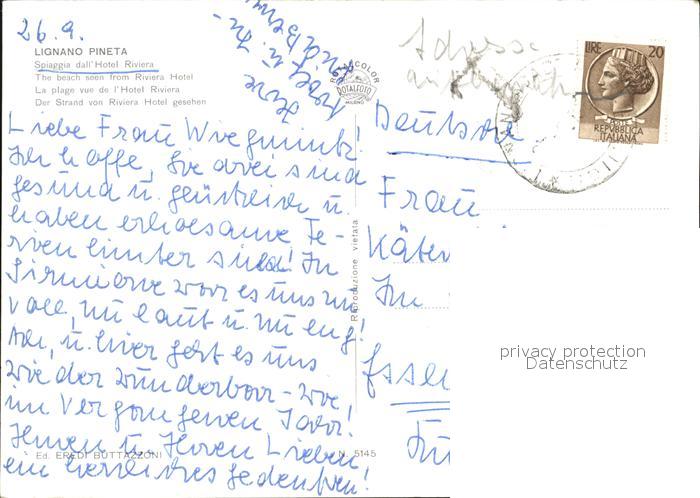 26.9.
LIGNANO PINETA
Spiaggia dall'Hotel Riviera
The beach seen from Riviera Hotel
La plage vue de l'Hotel Riviera
Der Strand von Riviera Hotel gesehen
Liebe Frau
Ich hoffe, Sie drei sind
gesund u. glücklich u.
haben erholsame Fe-
rien hinter sich! In
Sirmione war es uns zu
voll, zu laut u. zu eng!
Ach, u. hier geht es uns
wie der wunderbar - wie
im vergangenen Jahr.
Ihnen u. Ihren Lieben
ein herzliches Gedenken!
Ihre
u.
ROTALCOLOR
ROTALFOTO
MILANO
Riproduzione vietata
Ed. EREDI BUTTAZZONI
N. 5145
Adresse
LIRE 20
REPUBBLICA
ITALIANA
Frau
Käte
Im
Essen
privacy protection
Datenschutz